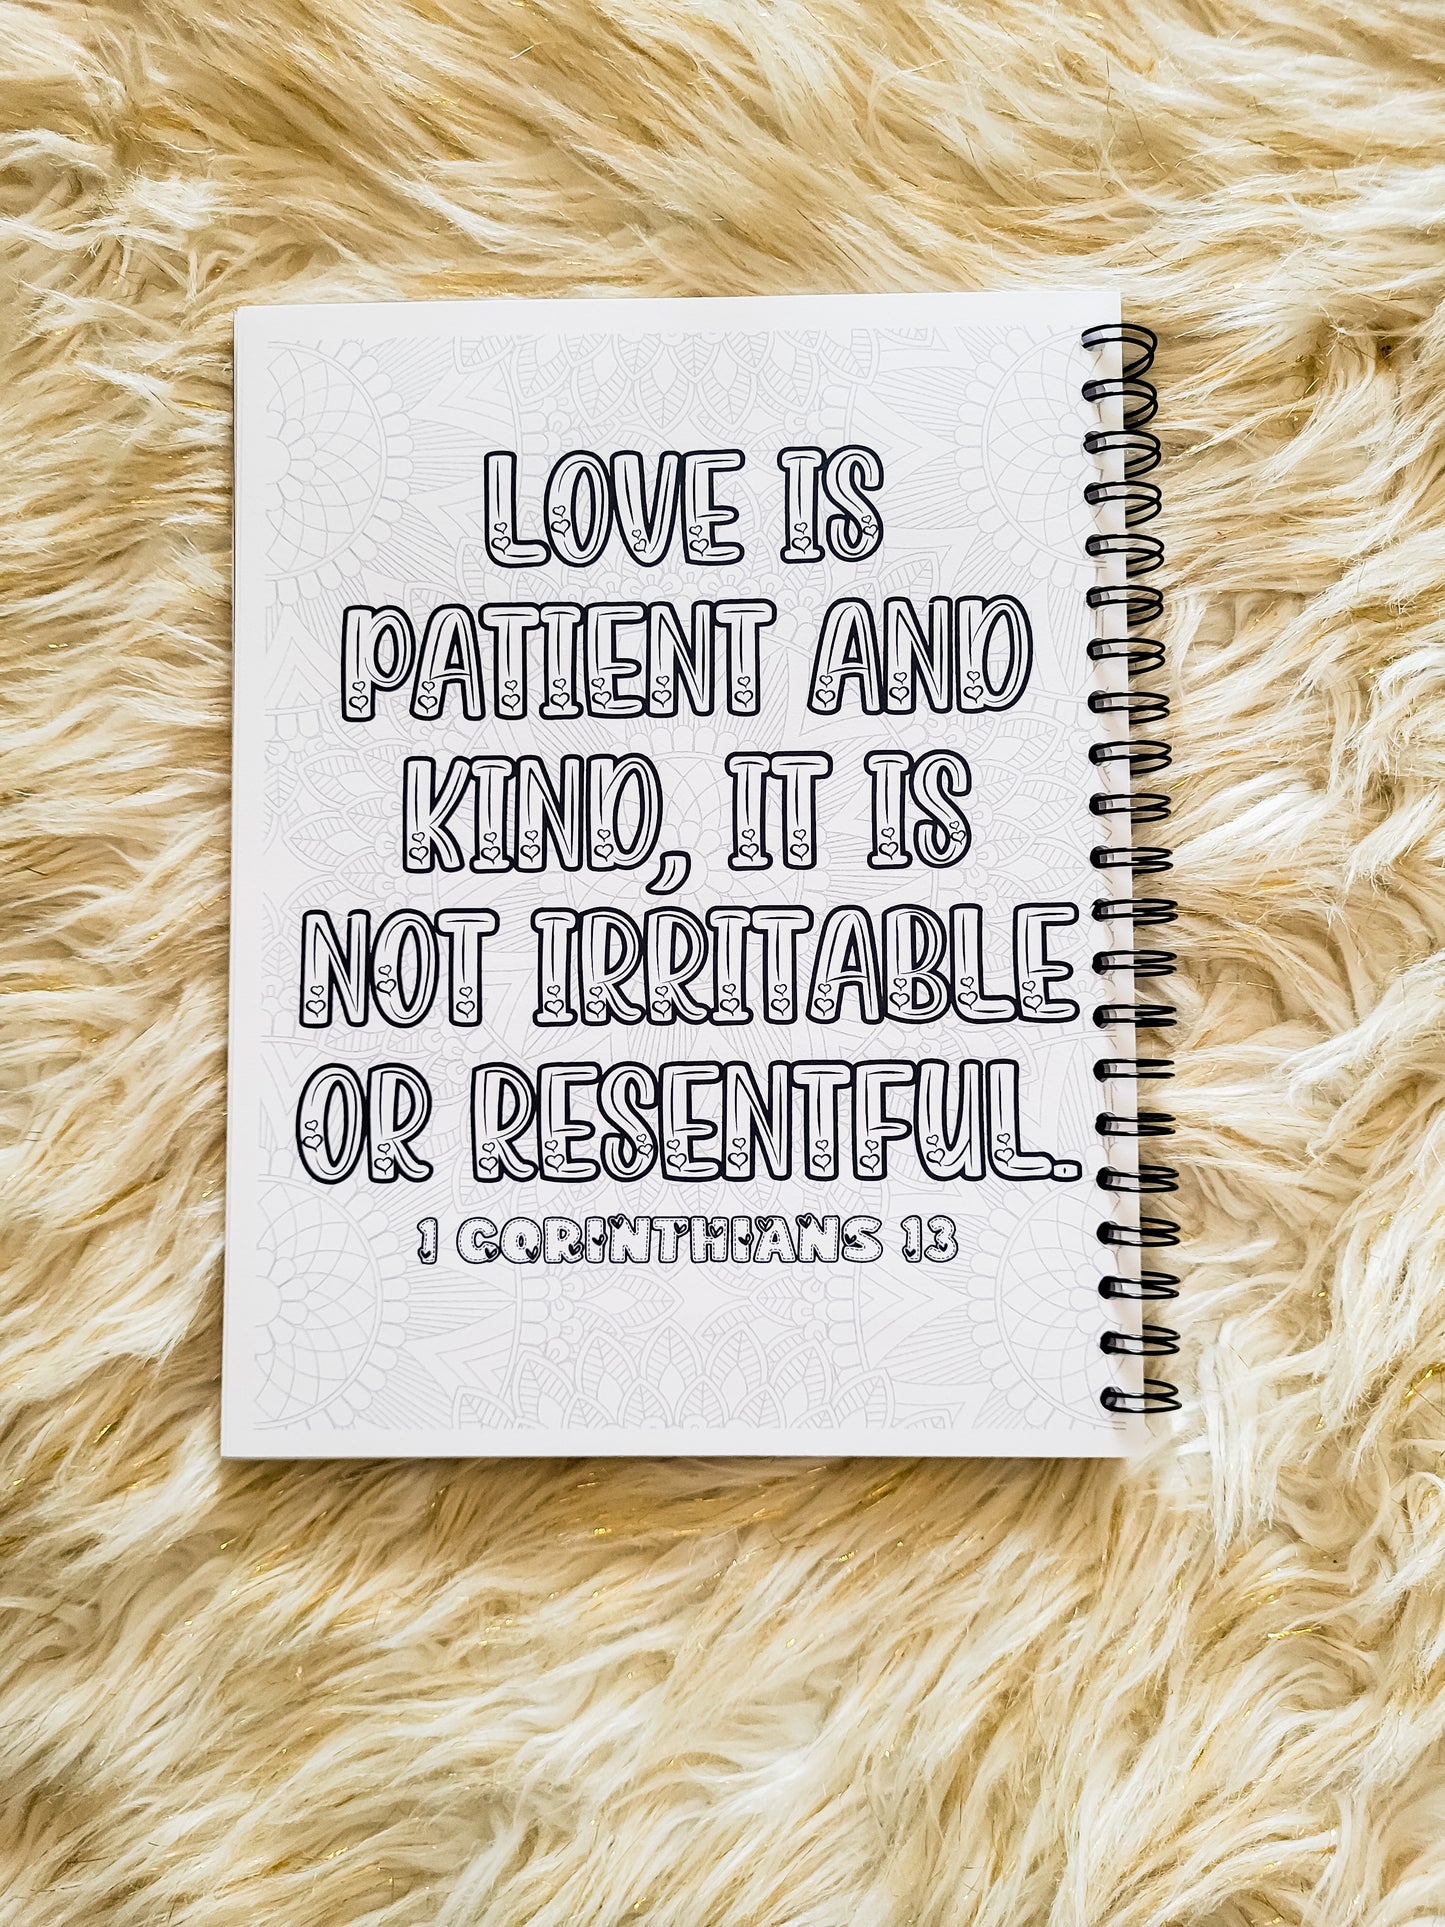 LOVE IS
PATIENT AND
KIND, IT IS
NOT IRRITABLE
OR RESENTFUL.
1 CORINTHIANS 13